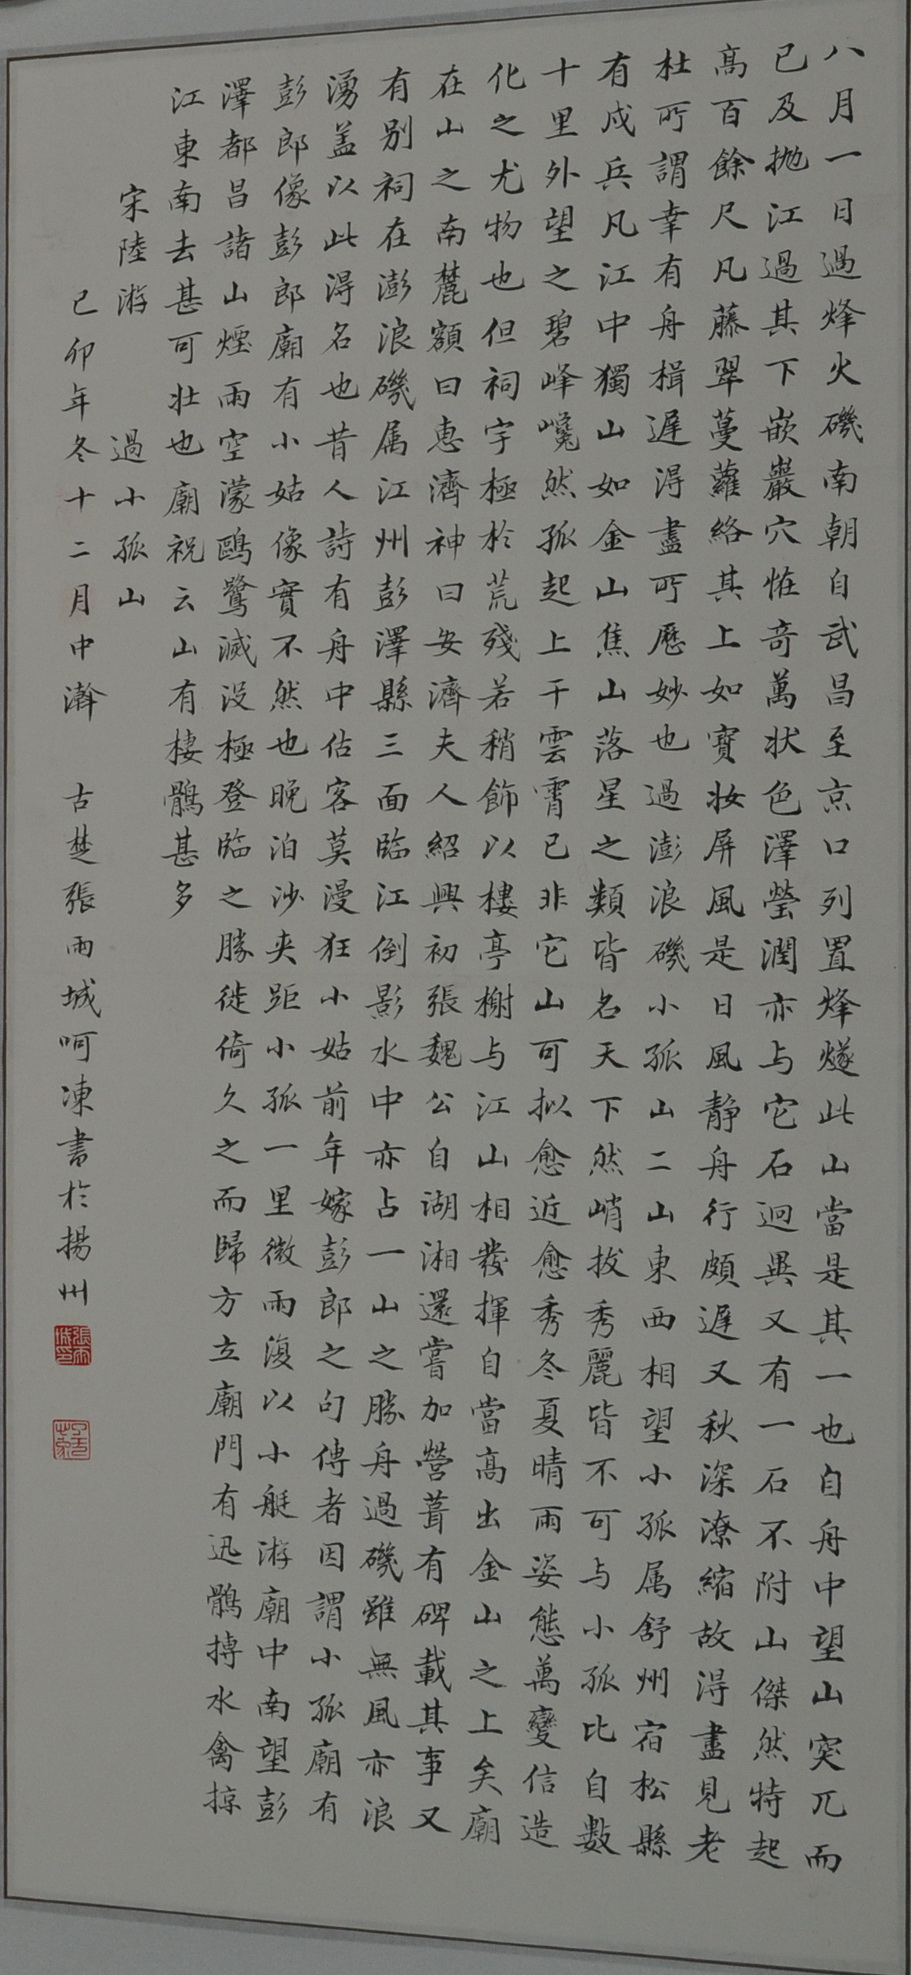 八月一日過烽火磯南朝自武昌至京口列置烽燧此山當是其一也自舟中望山突兀而
已及拋江過其下嵌巖穴恠奇萬狀色澤瑩潤亦与它石迥異又有一石不附山傑然特起
高百餘尺凡藤翠蔓蘿絡其上如寶妝屏風是日風靜舟行頗遲又秋深潦縮故得盡見老
杜所謂幸有舟楫遲得盡所歷妙也過澎浪磯小孤山二山東西相望小孤属舒州宿松縣
有戍兵凡江中獨山如金山焦山落星之類皆名天下然峭拔秀麗皆不可与小孤比自數
十里外望之碧峰巉然孤起上干雲霄已非它山可拟愈近愈秀冬夏晴雨姿態萬變信造
化之尤物也但祠宇極於荒殘若稍飾以樓亭榭与江山相發揮自當高出金山之上矣廟
在山之南麓額曰惠濟神曰安濟夫人紹興初張魏公自湖湘還嘗加營葺有碑載其事又
有别祠在澎浪磯属江州彭澤縣三面臨江倒影水中亦占一山之勝舟過磯雖無風亦浪
湧盖以此得名也昔人詩有舟中估客莫漫狂小姑前年嫁彭郎之句傳者因謂小孤廟有
彭郎像彭郎廟有小姑像實不然也晚泊沙夹距小孤一里微雨復以小艇游廟中南望彭
澤都昌諸山煙雨空濛鷗鷺滅没極登臨之勝徙倚久之而歸方立廟門有迅鶻搏水禽掠
江東南去甚可壮也廟祝云山有棲鶻甚多
宋陸游 過小孤山
己卯年冬十二月中瀚 古楚張雨城呵凍書於揚州
張雨城印